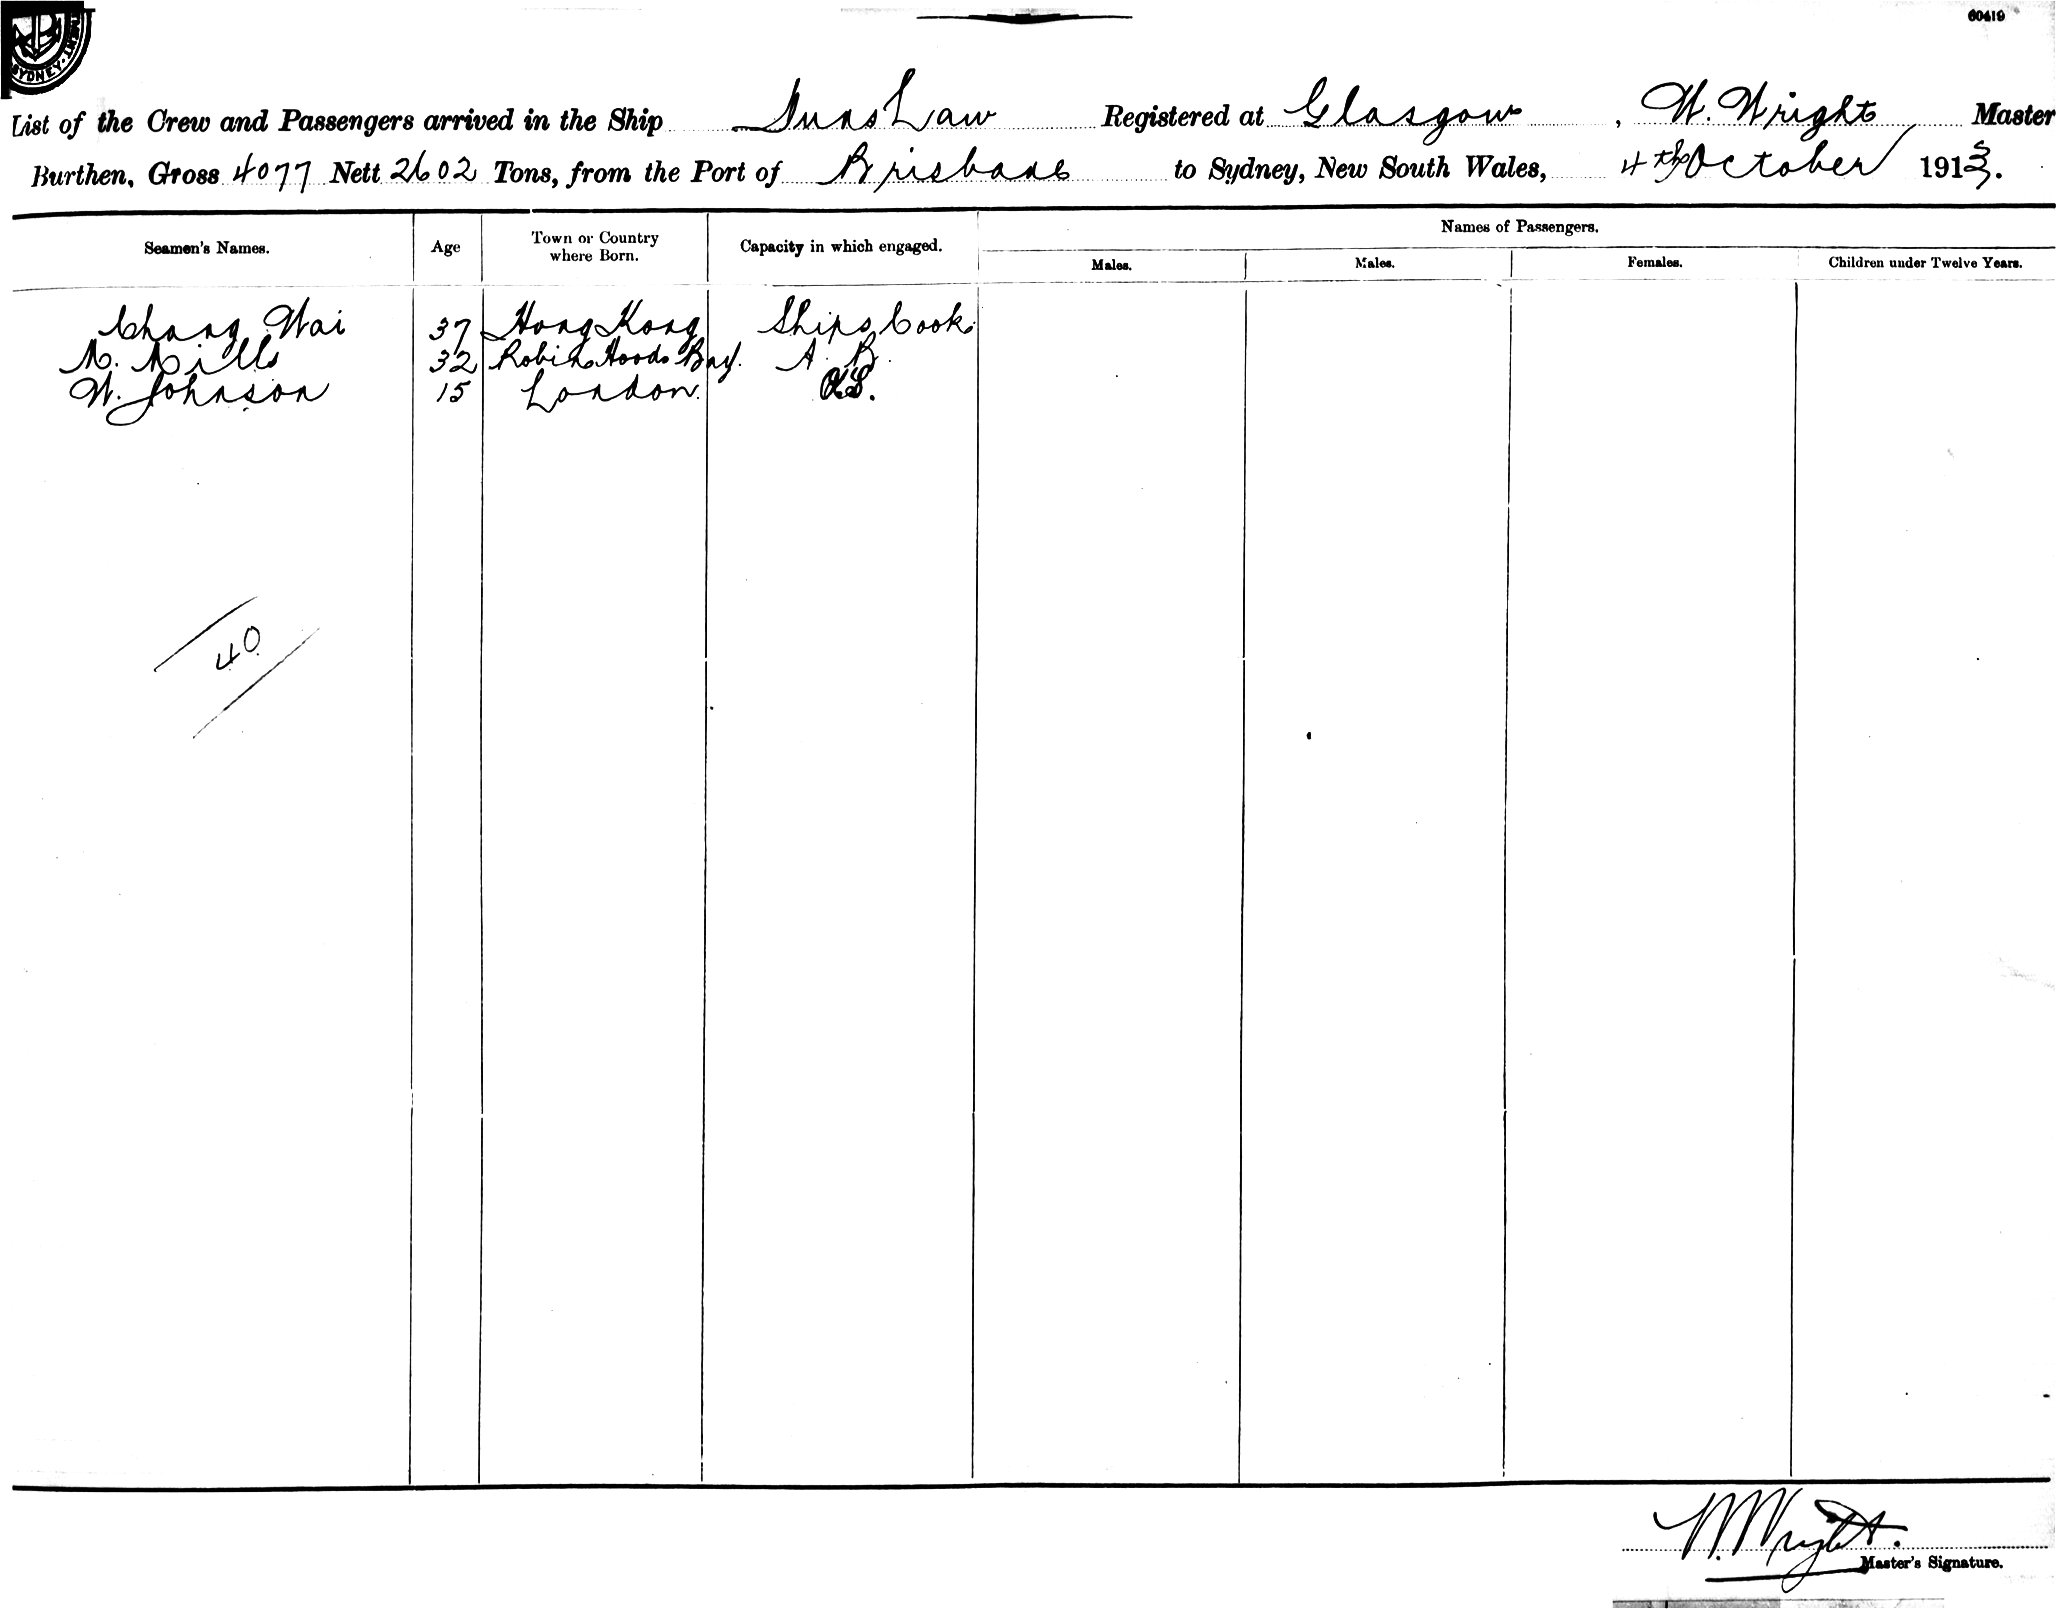 60419
SYDNEY
List of the Crew and Passengers arrived in the Ship Duns Law Registered at Glasgow, W. Wright Master
Burthen, Gross 4077 Nett 2602 Tons, from the Port of Brisbane to Sydney, New South Wales, 4th October 1913.
Seamen's Names. Age Town or Country where Born. Capacity in which engaged. Names of Passengers.
Males. Males. Females. Children under Twelve Years.
Chang Wai 37 Hong Kong Ships Cook
M. Mills 32 Robin Hoods Bay. A. B.
W. Johnson 15 London. O.S.
40
W. Wright.
Master's Signature.